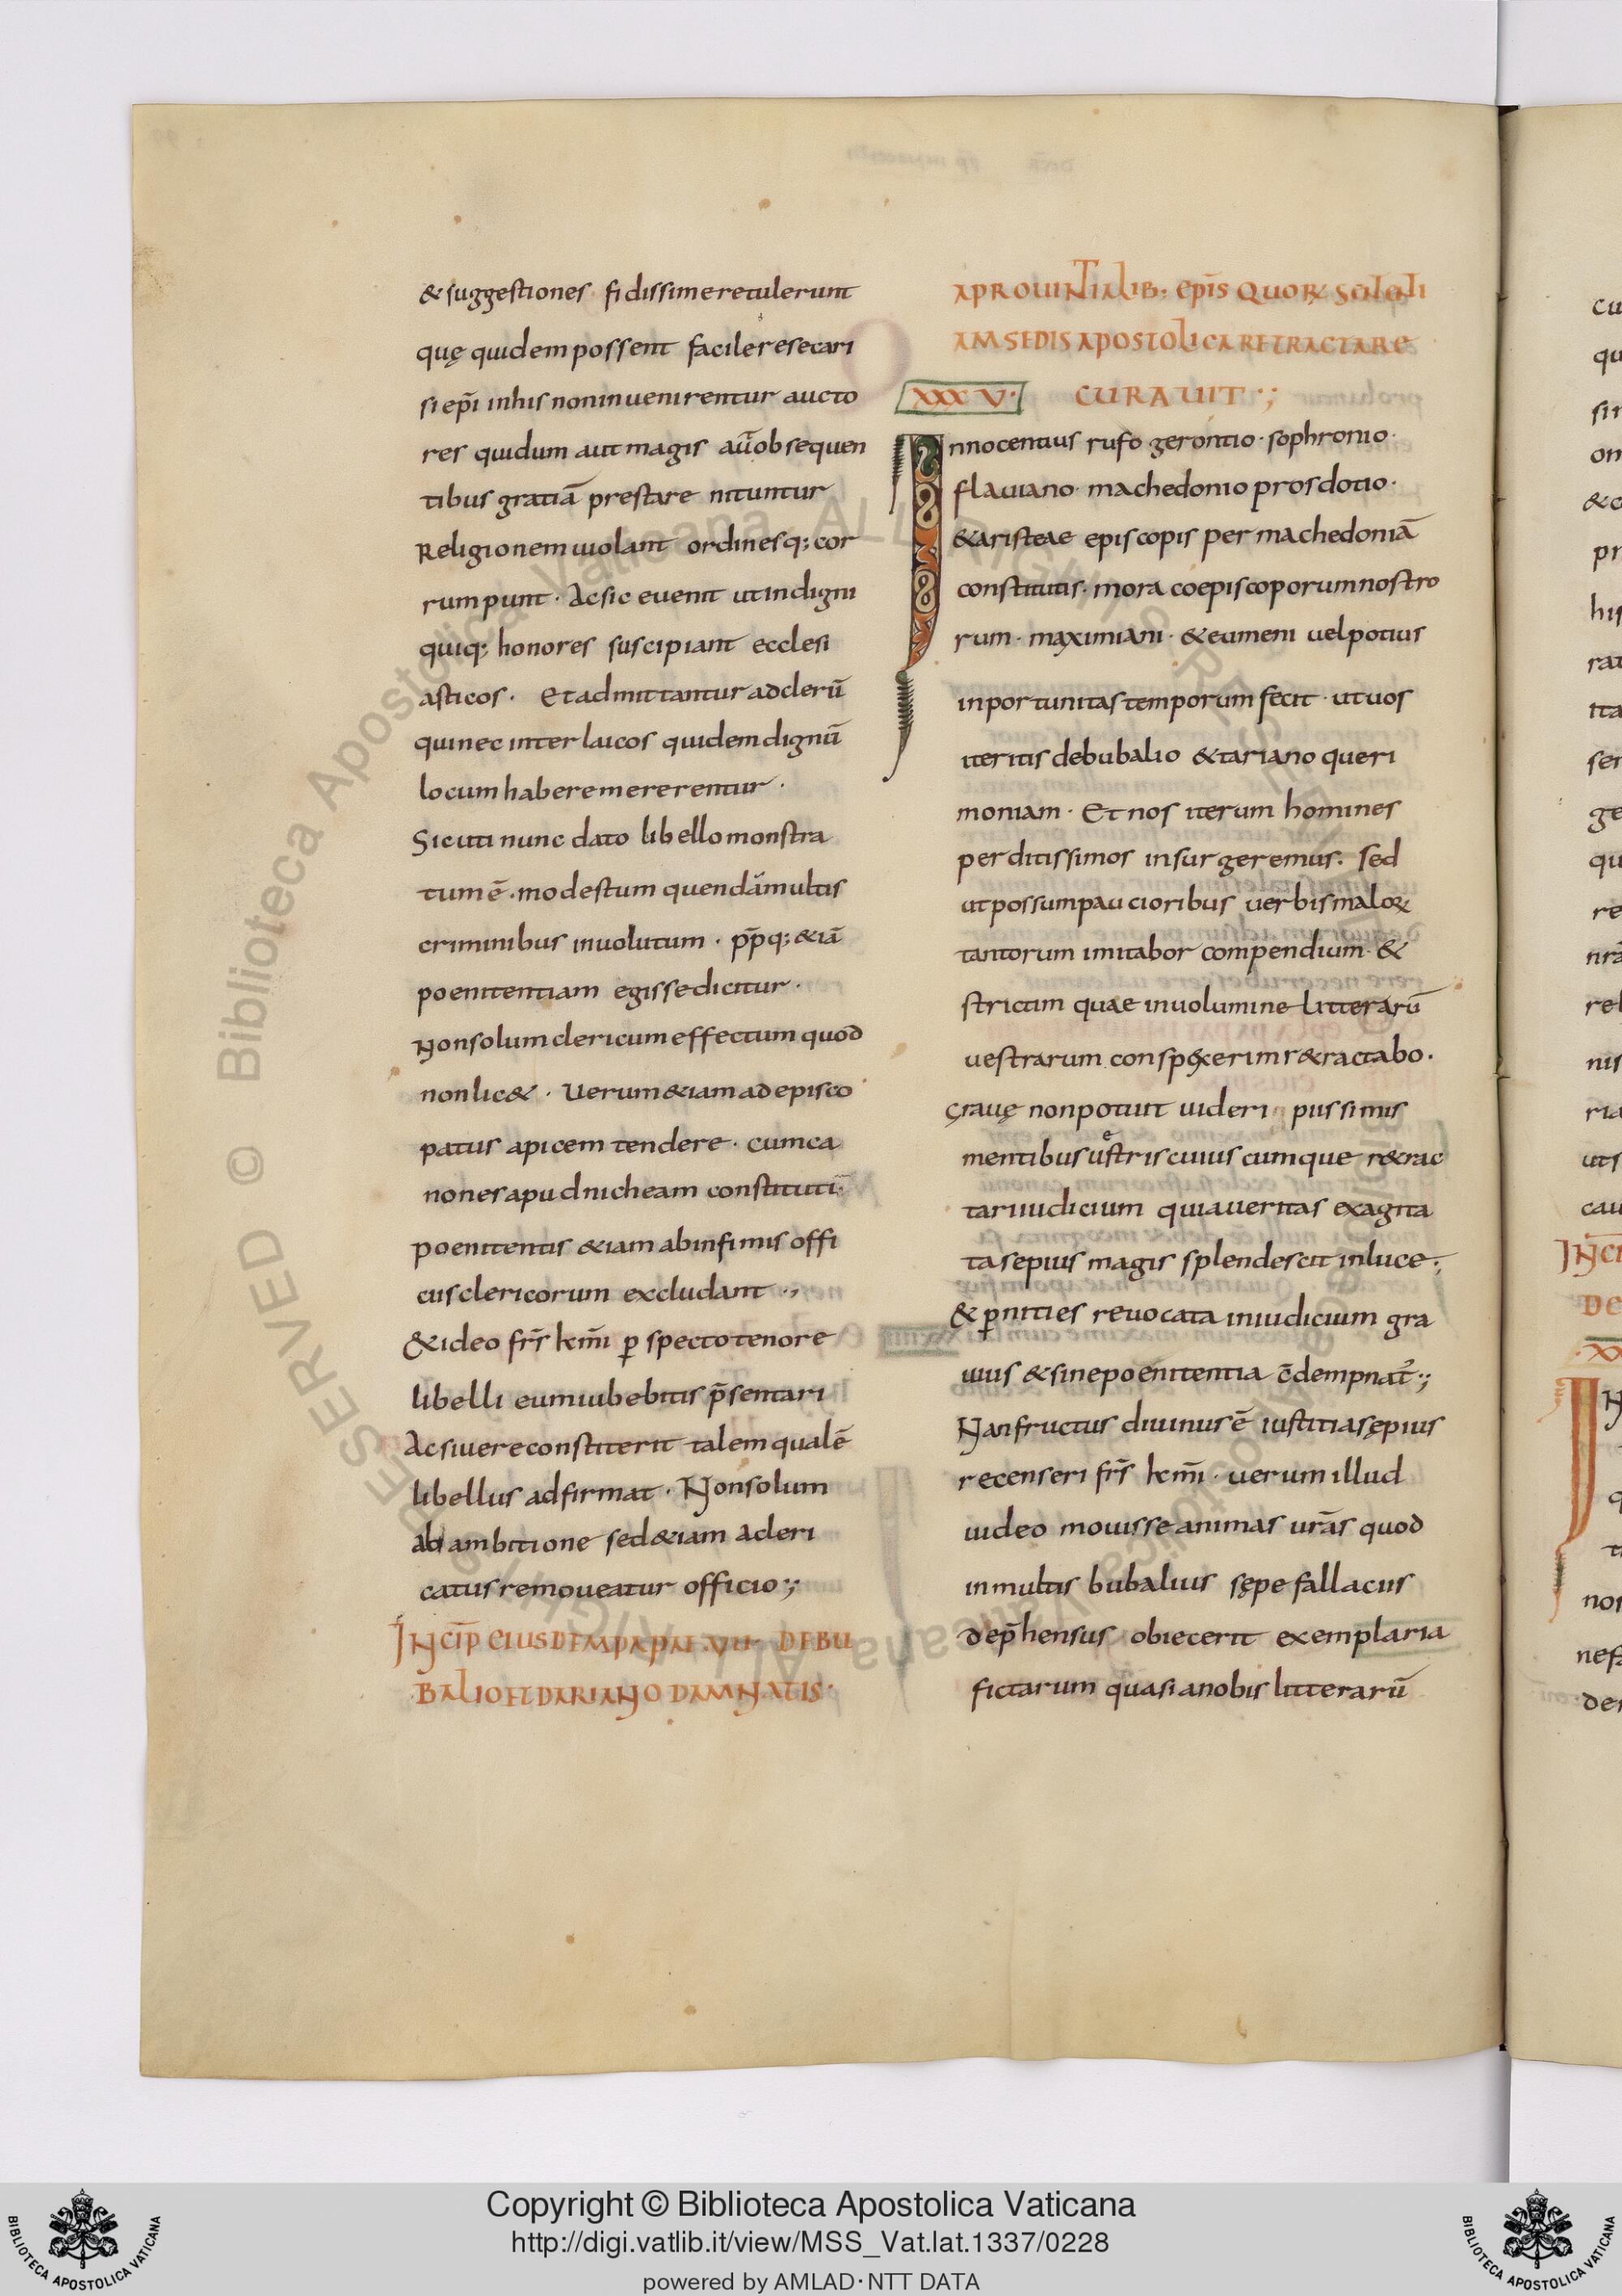 & suggestiones fidissime retulerunt
quę quidem possent facile resecari
si ep̄i in his non inuenirentur aucto
res qui dum aut magis aūobsequen
tibus gratiā prestare nituntur
Religionem uiolant ordinesq; cor
rumpunt · Ac sic euenit ut indigni
quiq; honores suscipiant ecclesi
asticos · Et admittantur ad clerū
qui nec inter laicos quidem dignū
locum habere mererentur ·
Sicuti nunc dato libello monstra
tum ē · modestum quendā multis
criminibus inuolutum · pp̄q; &iā
poenitentiam egisse dicitur ·
Non solum clericum effectum quod
non lic& · Uerum &iam ad episco
patus apicem tendere · cum ca
nones apud nicheam constituti
poenitentis &iam ab infimis offi
ciis clericorum excludant ·,
& ideo fr̄s km̄i p̱specto tenore
libelli eum iubebitis p̄sentari
Ac si uere constiterit talem qualē
libellus adfirmat · Non solum
ab ambitione sed &iam a cleri
catus remoueatur officio ·;
INCIP̄ EIUSDEM PAPAE · VII · DE BU
BALIO ET DARIANO DAMNATIS ·
A PROUINTIALIB: EPĪS QUORꝜ SENTENTI
AM SEDIS APOSTOLICA RETRACTARE
XXXV · CURAUIT ·;
Innocentius rufo gerontio · sophronio ·
flauiano · machedonio prosdotio ·
& aristeae episcopis per machedoniā
constitutis · mora coepiscoporum nostro
rum · maximiani · & eumeni uel potius
inportunitas temporum fecit · ut uos
iteritis de bubalio & tariano queri
moniam · Et nos iterum homines
perditissimos insurgeremus · sed
ut possum paucioribus uerbis maloꝝ
tantorum imitabor compendium · &
strictim quae in uolumine litterarū
uestrarum conspexerim r&ractabo ·
Grauę non potuit uideri piissimis
mentibus uestris cuiuscumque r&rac
tari iudicium quia ueritas exagita
ta sepius magis splendescit in luce ·;
& p̱nities reuocata in iudicium gra
uius & sine poenitentia c̄dempnat̄ ·;
Nan fructus diuinus ē iustitia sępius
recenseri fr̄s km̄i · uerum illud
uideo mouisse animas ur̄as quod
in multis bubalius sępe fallaciis
dep̄hensus obiecerit exemplaria
fictarum quasi a nobis litterarū
Copyright © Biblioteca Apostolica Vaticana
http://digi.vatlib.it/view/MSS_Vat.lat.1337/0228
powered by AMLAD · NTT DATA